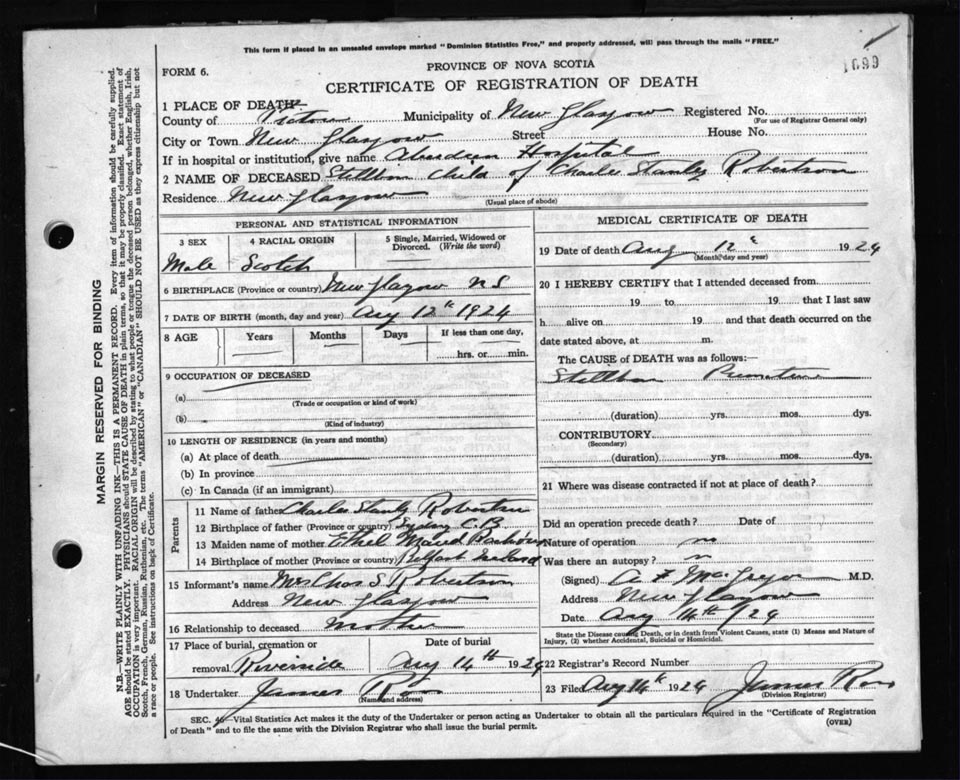 This form if placed in an unsealed envelope marked "Dominion Statistics Free," and properly addressed, will pass through the mails "FREE."
1699
PROVINCE OF NOVA SCOTIA
FORM 6.
CERTIFICATE OF REGISTRATION OF DEATH
1 PLACE OF DEATH
County of Pictou Municipality of New Glasgow Registered No.
(For use of Registrar General only)
City or Town New Glasgow Street House No.
If in hospital or institution, give name Aberdeen Hospital
2 NAME OF DECEASED Stillborn Child of Charles Stanley Robertson
Residence New Glasgow
(Usual place of abode)
PERSONAL AND STATISTICAL INFORMATION
3 SEX 4 RACIAL ORIGIN 5 Single, Married, Widowed or Divorced. (Write the word)
Male Scotch
6 BIRTHPLACE (Province or country) New Glasgow N S
7 DATE OF BIRTH (month, day and year) Aug 12th 1924
8 AGE Years Months Days If less than one day,
hrs. or min.
9 OCCUPATION OF DECEASED
(a)
(Trade or occupation or kind of work)
(b)
(Kind of industry)
10 LENGTH OF RESIDENCE (in years and months)
(a) At place of death
(b) In province
(c) In Canada (if an immigrant)
Parents
11 Name of father Charles Stanly Robertson
12 Birthplace of father (Province or country) Sydney C.B.
13 Maiden name of mother Ethel Maud
14 Birthplace of mother (Province or country) Belfast Ireland
15 Informant's name Mrs Chas S. Robertson
Address New Glasgow
16 Relationship to deceased Mother
17 Place of burial, cremation or removal Riverside
Date of burial Aug 14th 1924
18 Undertaker James Ross
(Name and address)
MEDICAL CERTIFICATE OF DEATH
19 Date of death Aug 12 1924
(Month, day and year)
20 I HEREBY CERTIFY that I attended deceased from
19 to 19 that I last saw
h alive on 19 and that death occurred on the
date stated above, at m.
The CAUSE of DEATH was as follows:
Stillborn Premature
(duration) yrs. mos. dys.
CONTRIBUTORY
(Secondary)
(duration) yrs. mos. dys.
21 Where was disease contracted if not at place of death?
Did an operation precede death? Date of
Nature of operation no
Was there an autopsy? no
(Signed) M.D.
Address New Glasgow
Date Aug 14th /24
State the Disease causing Death, or in death from Violent Causes, state (1) Means and Nature of
Injury, (2) whether Accidental, Suicidal or Homicidal.
22 Registrar's Record Number
23 Filed Aug 14 1924 James Ross
(Division Registrar)
SEC. Vital Statistics Act makes it the duty of the Undertaker or person acting as Undertaker to obtain all the particulars required in the "Certificate of Registration
of Death" and to file the same with the Division Registrar who shall issue the burial permit.
(OVER)
MARGIN RESERVED FOR BINDING
N.B.—WRITE PLAINLY WITH UNFADING INK—THIS IS A PERMANENT RECORD. Every item of information should be carefully supplied.
AGE should be stated EXACTLY. PHYSICIANS should STATE CAUSE OF DEATH in plain terms, so that it may be properly classified. Exact statement of
OCCUPATION is very important. RACIAL ORIGIN will be described by stating to what people or tongue the deceased person belonged, whether English, Irish,
Scotch, French, German, Russian, Ruthenian, etc. The terms "AMERICAN" or "CANADIAN" SHOULD NOT BE USED as they express citizenship but not
a race or people. See instructions on back of Certificate.